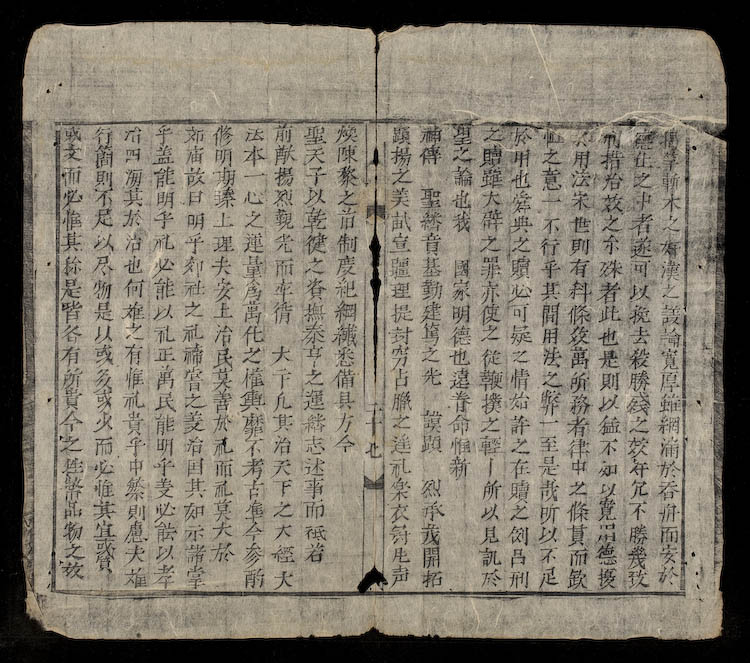 之有漢之議論寬厚雖網漏於吞舟而安於
之中者遂可以挽去殺勝殘之效年兄不勝幾致
刑措治效之不殊者此也是則以猛不如以寬用德援
用法宋世則有科條夋萬所務者律中之條貫而欽
恤之意一不行乎其間用法之弊一至是哉所以不足
於用也舜典之贖必可疑之情始許之在贖之例呂刑
之贖雖大辟之罪亦使之從鞭撲之輕所以見訊於
聖之論也我 國家明德也遠眷命惟新
神傳 聖繼育基勤建篤之先 謨顯 烈承茂開拓
顯揚之美試宣疆理提封窮占臘之進礼樂衣冠生声
煥陳黎之前制度紀綱纎悉備具方今
聖天子以乾健之資撫泰亨之運繼志述事而祗若
前猷揚烈覲光而率循 大下凡其治天下之大經大
法本一心之運量爲萬化之權輿靡不考古準今參酌
修明期臻上理夫安上治民莫善於礼而礼莫大於
郊庙故曰明乎郊社之礼禘嘗之義治国其如示諸掌
乎盖能明乎礼必能以礼正萬民能明乎義必能以孝
治四海其於治也何难之有惟礼貴乎中繁則慮夫难
行簡則不足以尽物是以或多或少而必惟其宜或質
或文而必惟其称是皆各有所貴今之牲幣品物之效
二十七